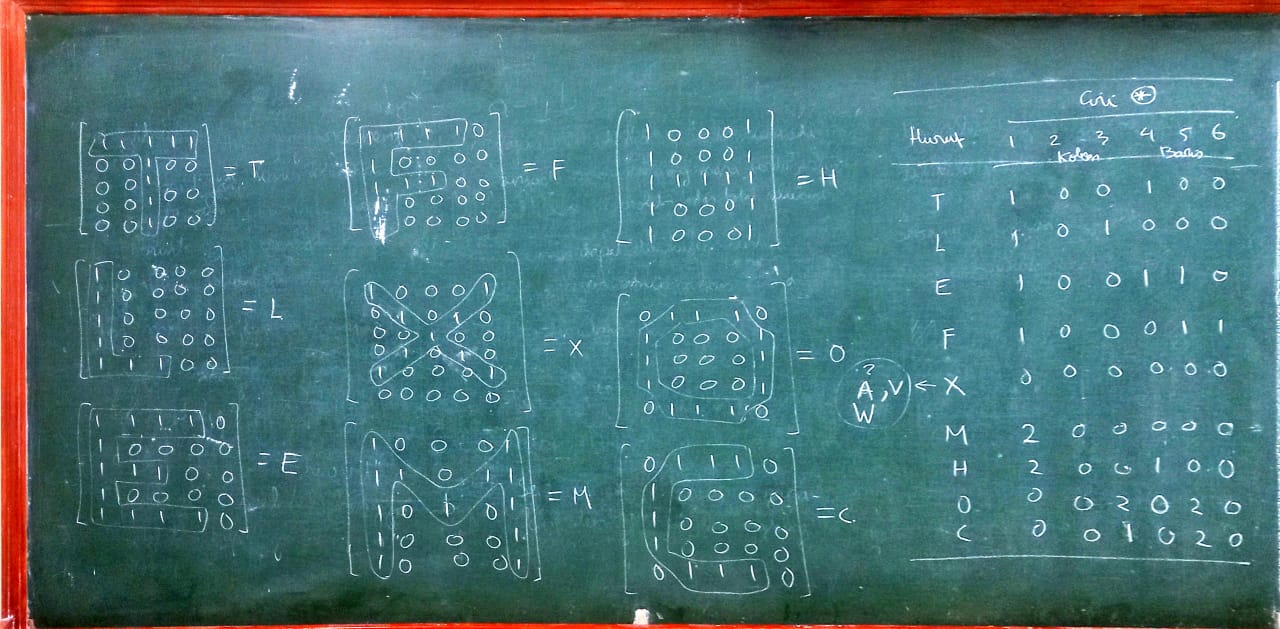 1 1 1 1 1
0 0 1 0 0
0 0 1 0 0
0 0 1 0 0
0 0 1 0 0
= T
1 1 1 1 0
1 0 0 0 0
1 1 1 0 0
1 0 0 0 0
0 0 0 0
= F
1 0 0 0 1
1 0 0 0 1
1 1 1 1 1
1 0 0 0 1
1 0 0 0 1
= H
1 0 0 0 0
1 0 0 0 0
1 0 0 0 0
1 0 0 0 0
1 1 1 0 0
= L
1 0 0 0 1
0 1 0 1 0
0 0 1 0 0
0 1 0 1 0
1 0 0 0 1
0 0 0 0 0
= X
0 1 1 1 0
1 0 0 0 1
1 0 0 0 1
1 0 0 0 1
0 1 1 1 0
= O
1 1 1 1 0
1 0 0 0 0
1 1 1 0 0
1 0 0 0 0
1 1 1 1 0
= E
1 0 0 0 1
1 1 0 1 1
1 0 1 0 1
1 0 0 0 1
1 0 0 0 1
= M
0 1 1 1 0
1 0 0 0 0
1 0 0 0 0
1 0 0 0 0
0 1 1 1 0
= C
Ciri *
Huruf 1 2 3 4 5 6
Kolom Baris
T 1 0 0 1 0 0
L 1 0 1 0 0 0
E 1 0 0 1 1 0
F 1 0 0 0 1 1
?
A, V ← X 0 0 0 0 0 0
W
M 2 0 0 0 0 0
H 2 0 0 1 0 0
O 0 0 2 0 2 0
C 0 0 1 0 2 0